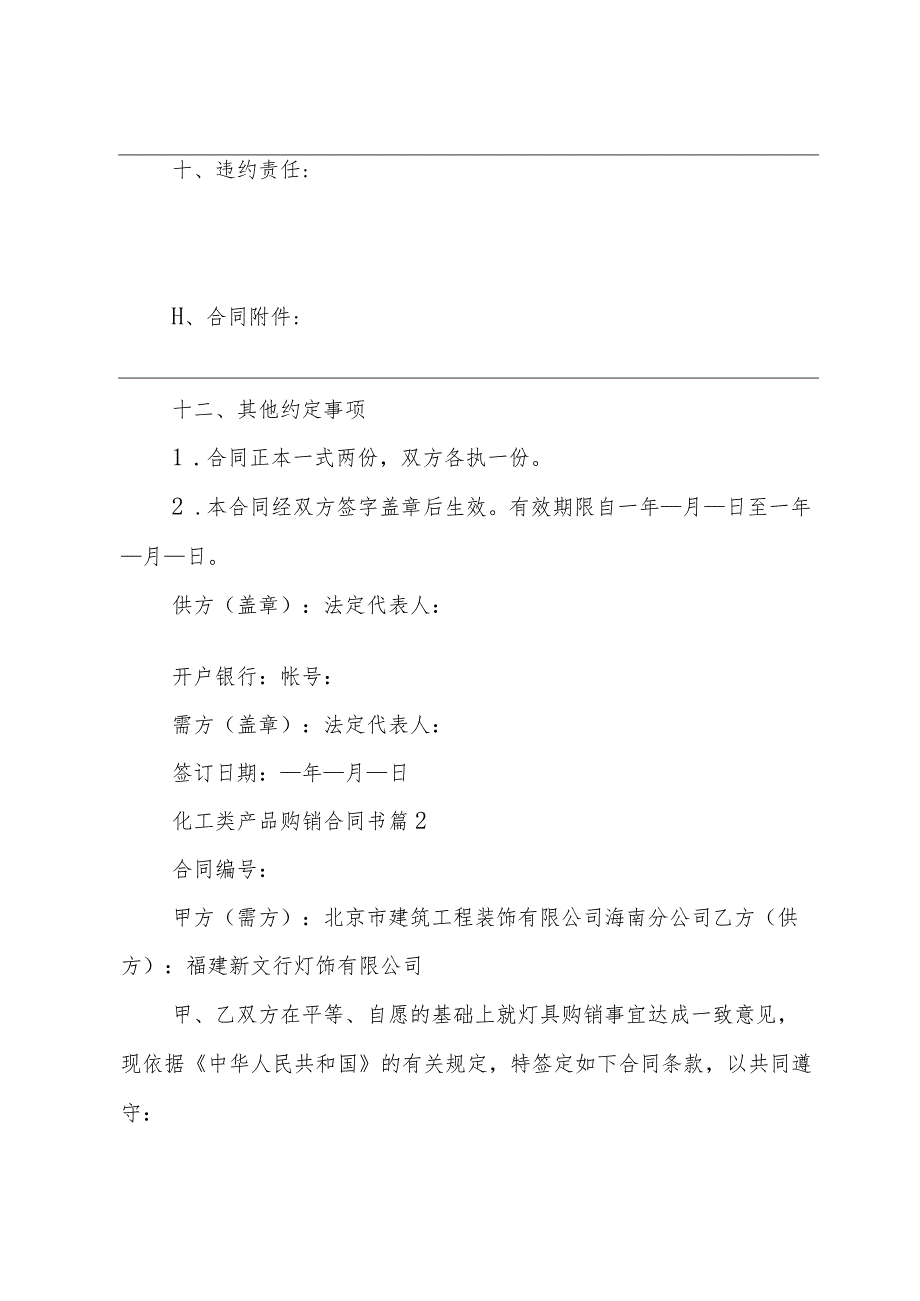 十、违约责任:
H、合同附件:
十二、其他约定事项
1 .合同正本一式两份，双方各执一份。
2 .本合同经双方签字盖章后生效。有效期限自一年—月—日至一年
—月—日。
供方（盖章）：法定代表人：
开户银行：帐号：
需方（盖章）：法定代表人：
签订日期：—年—月—日
化工类产品购销合同书篇2
合同编号：
甲方（需方）：北京市建筑工程装饰有限公司海南分公司乙方（供
方）：福建新文行灯饰有限公司
甲、乙双方在平等、自愿的基础上就灯具购销事宜达成一致意见，
现依据《中华人民共和国》的有关规定，特签定如下合同条款，以共同遵
守：